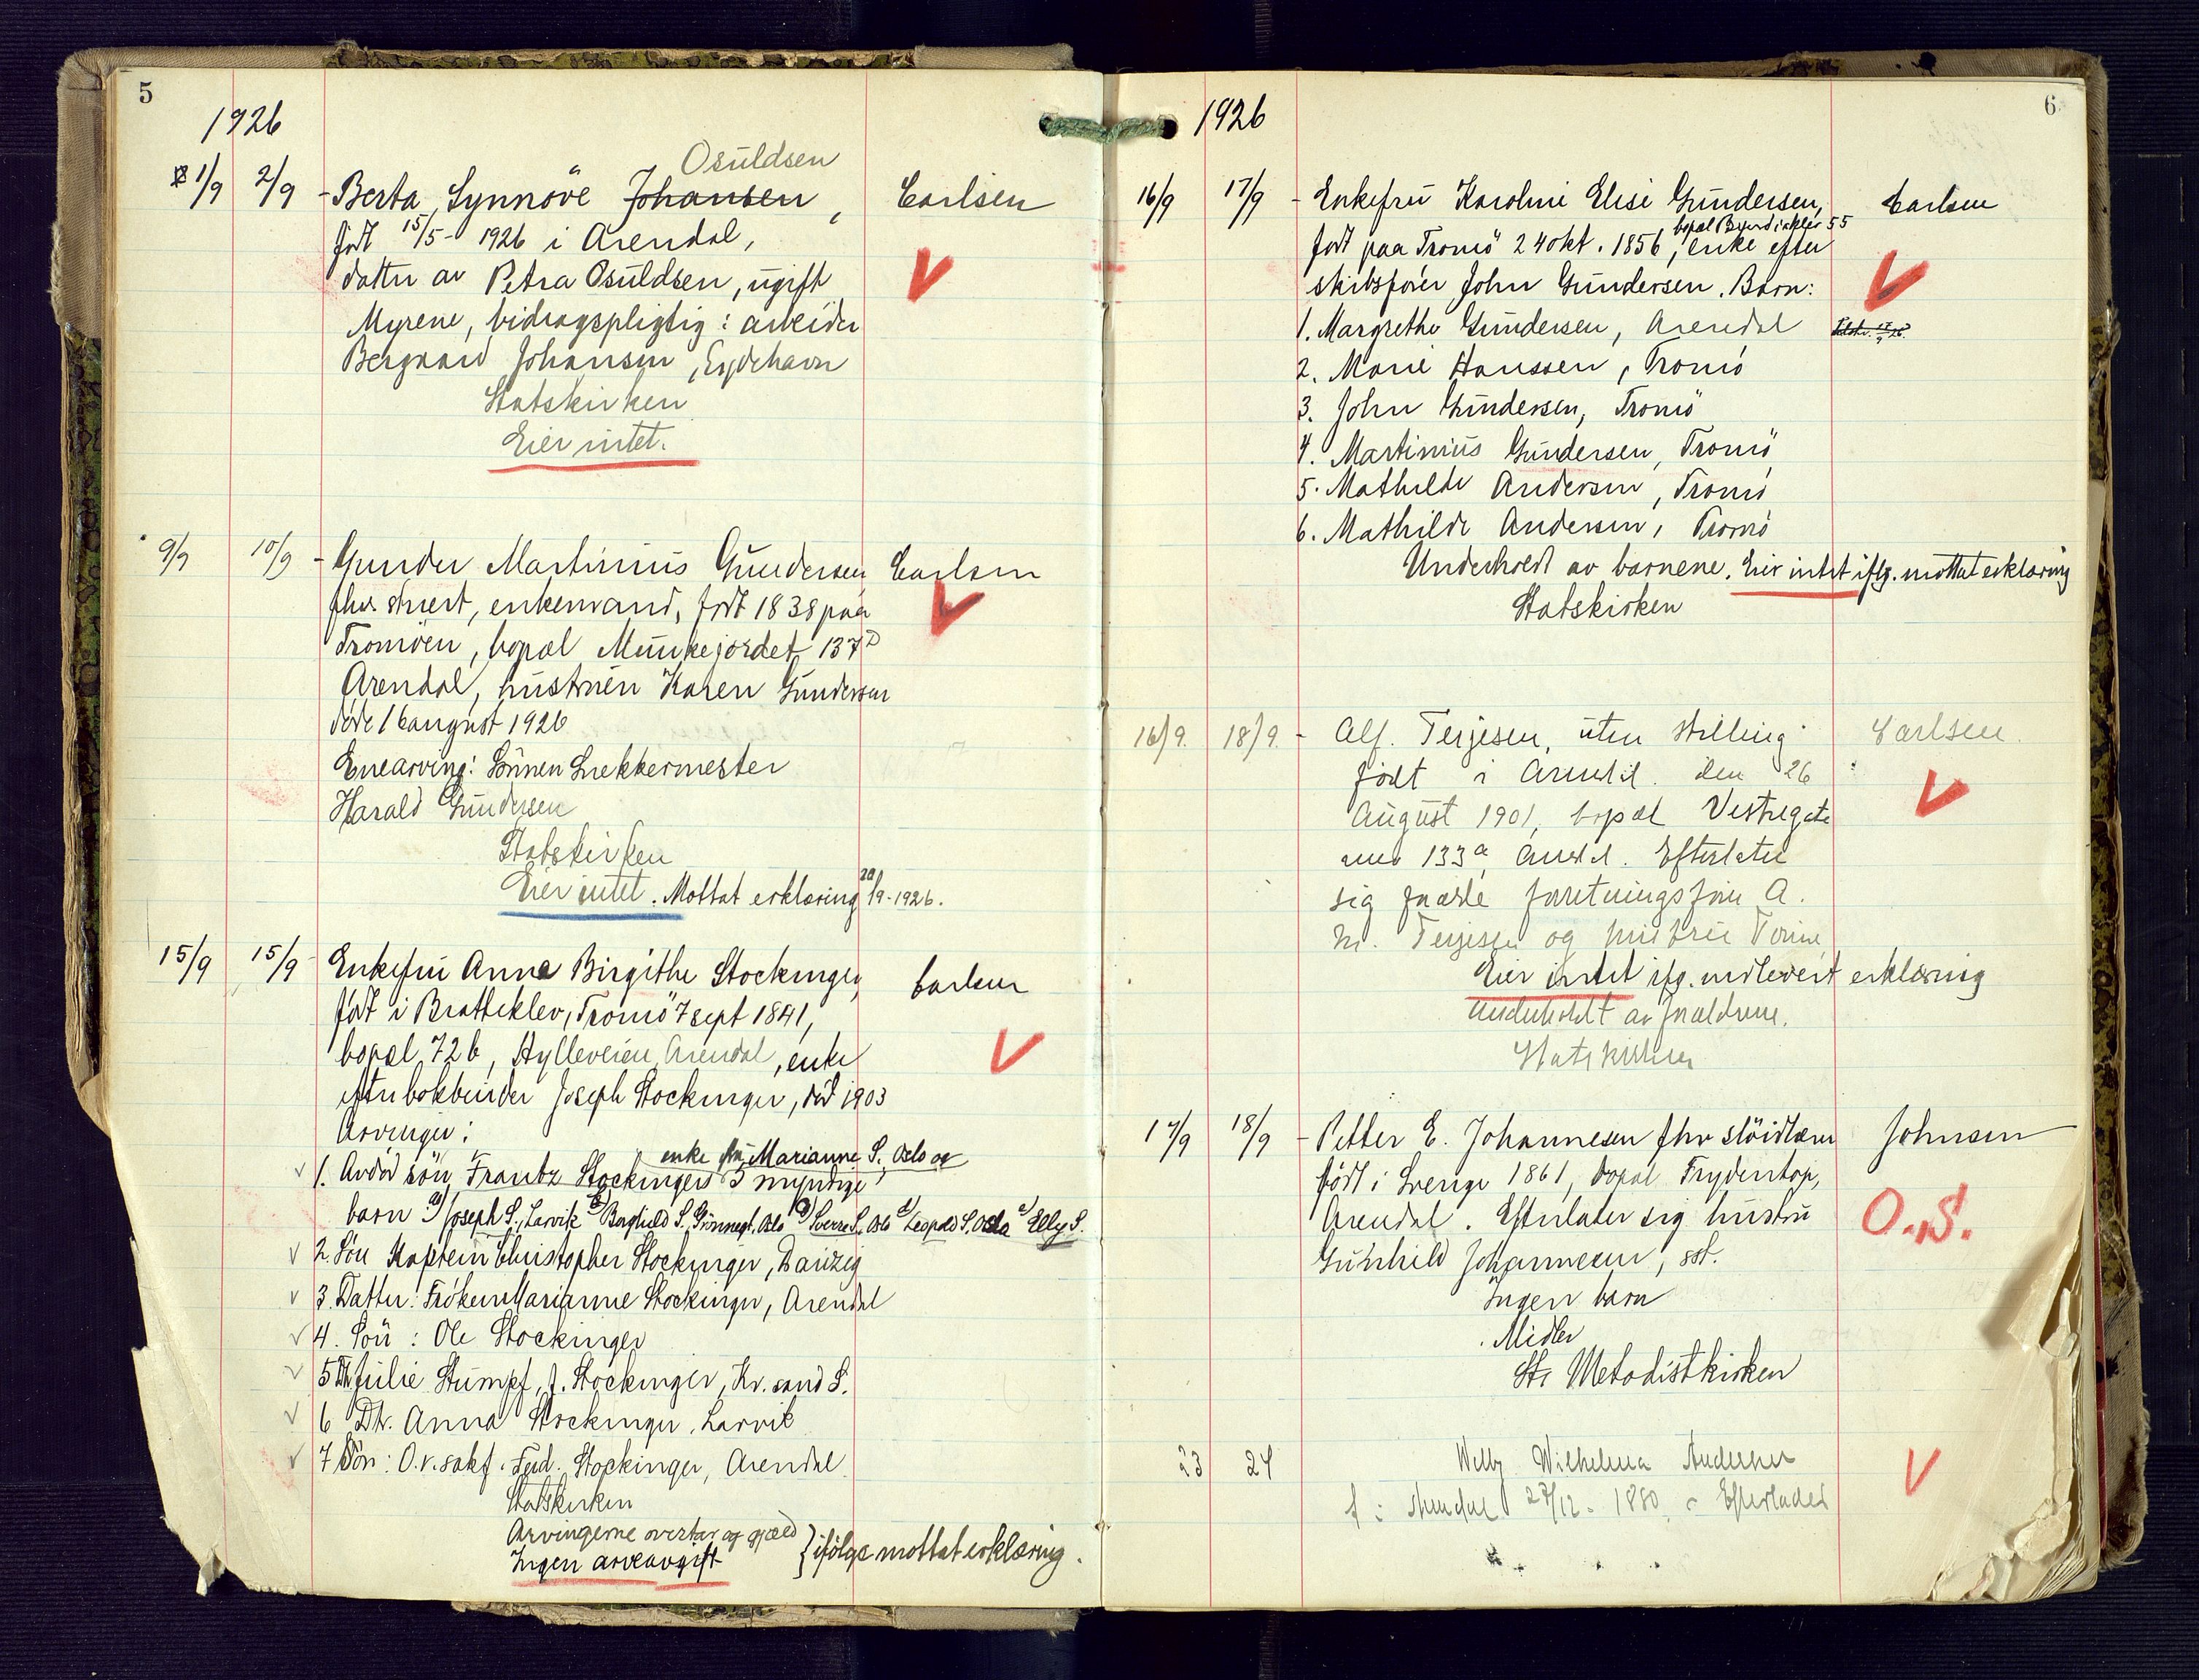 5
1926
1/9 2/9 - Berta Synnöve Johansen, Osuldsen Carlsen
född 15/5 - 1926 i Arendal,
datter av Petra Osuldsen, ugift
Myrene, bidragspligtig: arbeider
Bergvard Johansen, Eydehavn
Statskirken
Eier intet.
9/9 10/9 - Gunder Martinius Gundersen Carlsen
fhv. stuert, enkemand, født 1838 paa
Tromöen, bopæl Munkejordet 137 D
Arendal, hustruen Karen Gundersen
døde 16 august 1926
Enearving: Sönnen Snekkermester
Harald Gundersen
Statskirken
Eier intet. Mottat erklæring 20/9-1926.
15/9 15/9 - Enkefru Anna Birgithe Stockinger, Carlsen
født i Bratteklev, Tromö 7 sept 1841,
bopæl 72b, Hylleveien Arendal, enke
efter bokbinder Joseph Stockinger, död 1903
Arvinger:
enke fru Marianne S. Oslo og
1. Avdöd sön Frantz Stockingers 5 myndige
barn a) Joseph S., Larvik b) Borghild S., Grönnegt. Oslo c) Sverre S. Oslo d) Leopold S. Oslo e) Elly S.
2. Sön Kaptein Christopher Stockinger, Danzig
3. Datter: Fröken Marianne Stockinger, Arendal
4. Sön: Ole Stockinger
5 Dtr. Julie Stumpf, f. Stockinger, Kr.sand S.
6 Dtr. Anna Stockinger, Larvik
7 Sön: O.r.sakf. Ferd. Stockinger, Arendal
Statskirken
Arvingerne overtar og gjæld
Ingen arveavgift } ifölge mottat erklæring.
6
1926
16/9 17/9 - Enkefru Karoline Elise Gundersen, Carlsen
bopæl 55
født paa Tromö 24 okt. 1856, enke efter
skibsfører John Gundersen. Barn:
1. Margrethe Gundersen, Arendal
2. Marie Hanssen, Tromö
3. John Gundersen, Tromö
4. Martinius Gundersen, Tromö
5. Mathilde Andersen, Tromö
6. Mathilde Andersen, Tromö
Underholdt av barnene. Eier intet iflg. mottat erklæring
Statskirken
16/9. 18/9. - Alf. Terjesen, uten stilling Carlsen.
født i Arendal den 26
August 1901, bopæl Vestregate
133a, Arendal. Efterlater
sig foreldre forretningsfører A.
M. Terjesen og hustru
Eier intet iflg. indlevert erklæring
Underholdt av foreldrene.
Statskirken
17/9 18/9 - Petter E. Johannesen fhv slöidlærer Johnsen
født i Sverige 1861, bopæl Frydentop,
Arendal. Efterlater sig hustru O.S.
Gunhild Johannesen, sst.
Ingen barn
Midler
St. Metodistkirken
23 24 Welly Wilhelmina Andersen
f: Arendal 27/12-1880. Efterlader